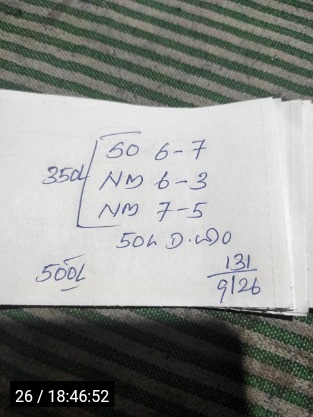 SO 6-7
350L NM 6-3
NM 7-5
50L
500L
131
9/26
26 / 18:46:52